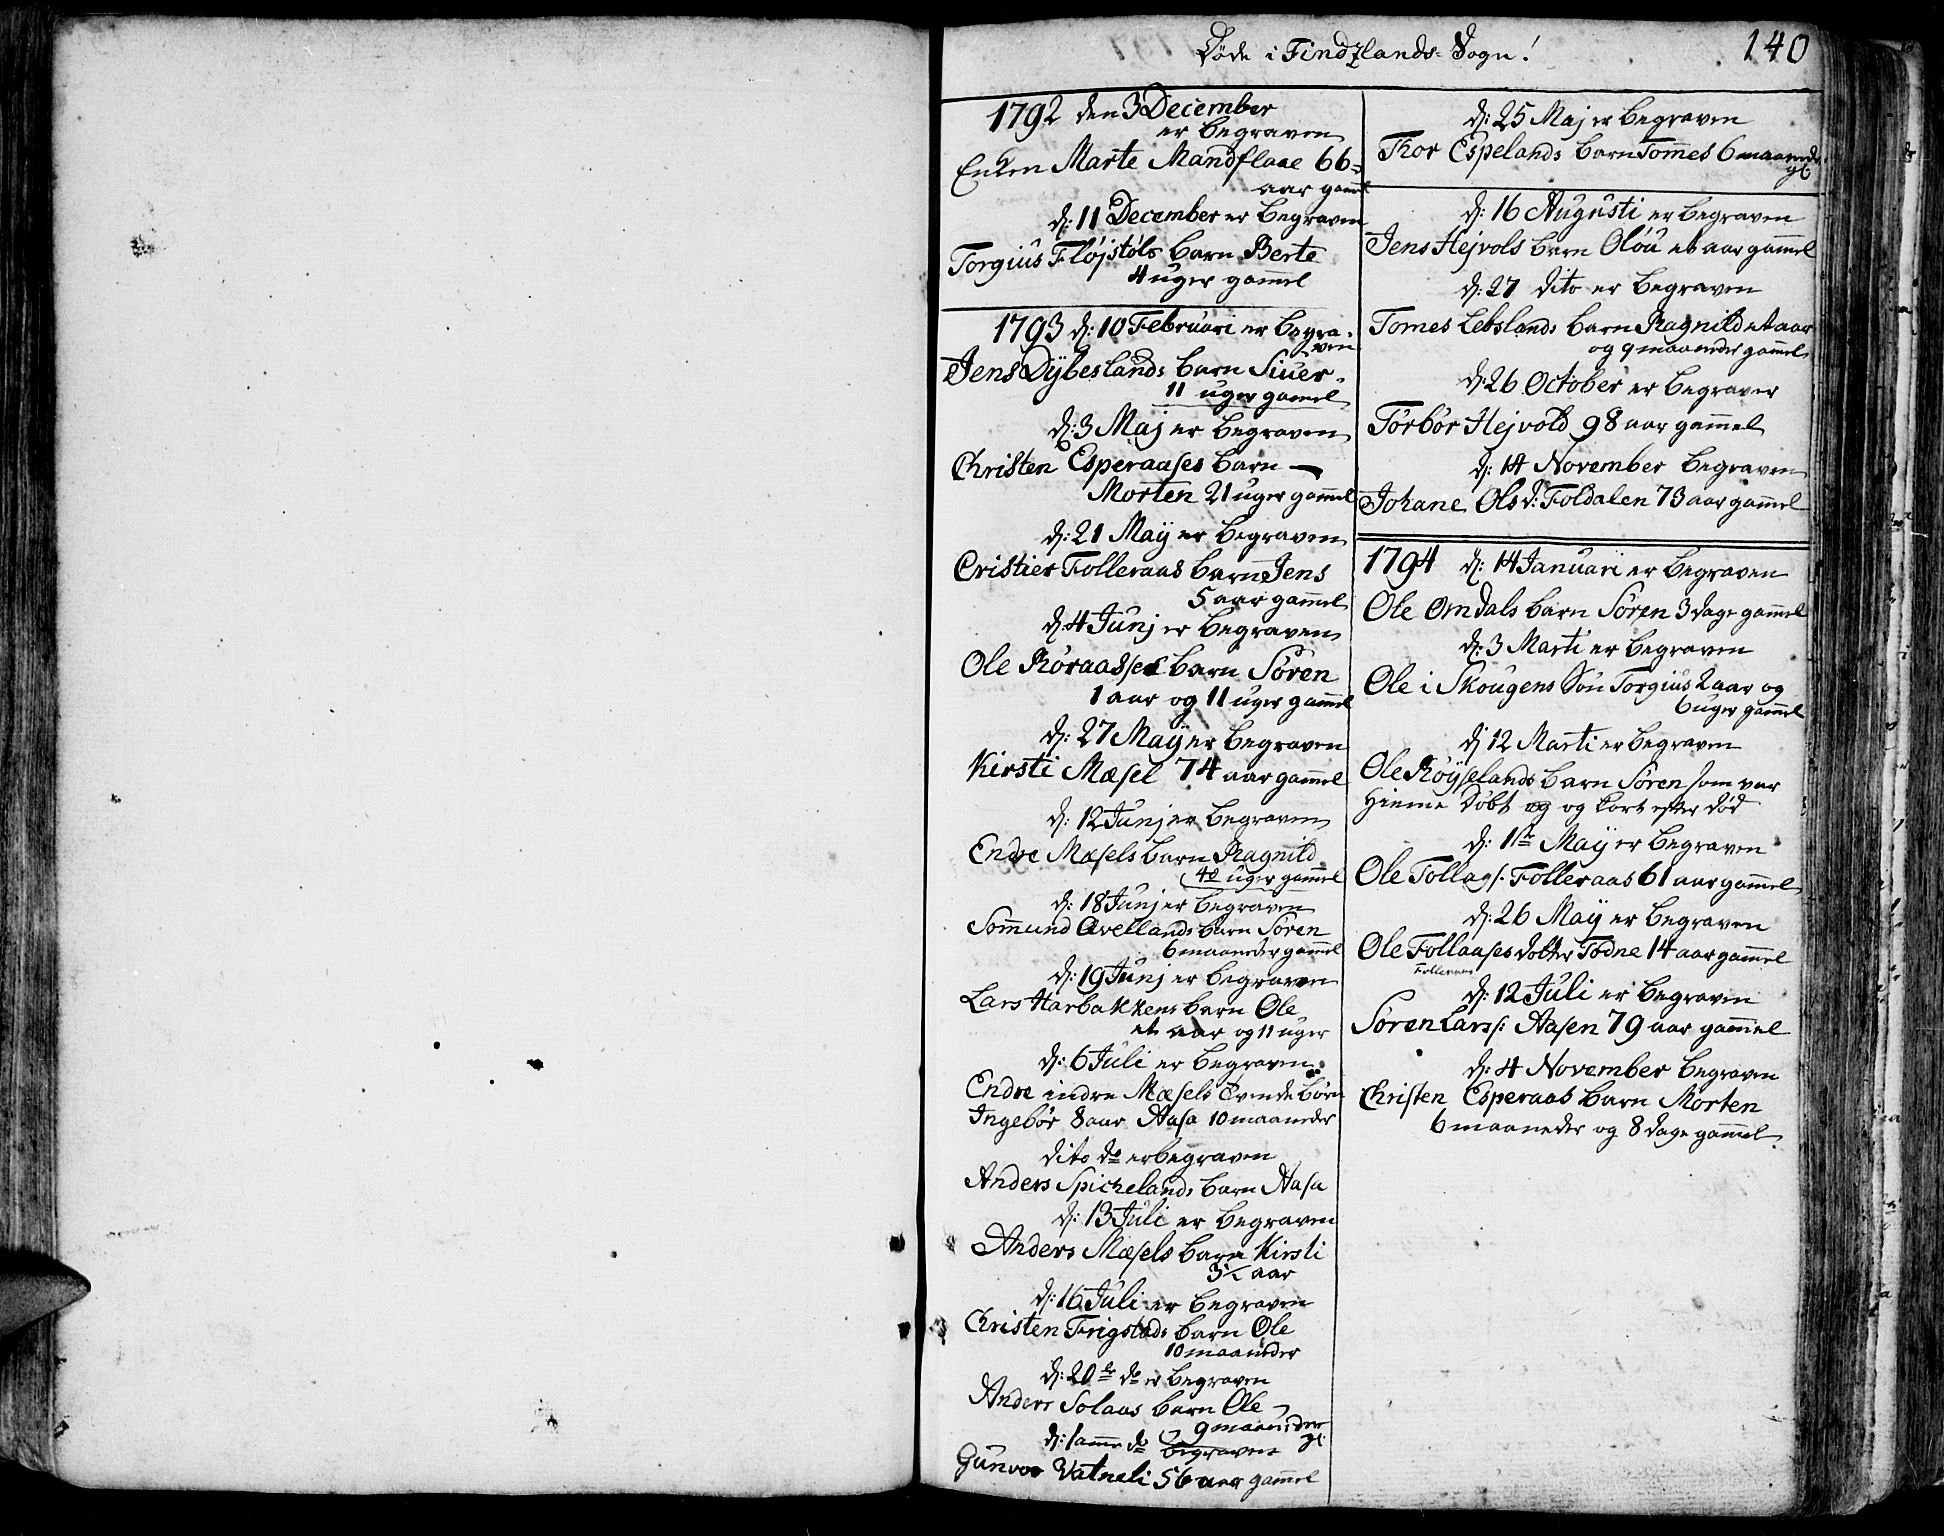 Døde i Findslands Sogn!
140
1792 den 3 December
er begraven
Enken Marte Mandflaae 66
aar gamel
d: 11 December er begraven
Torgius Fløjstøls barn Berte
4 uger gam̄el
1793 d: 10 Februari er begra-
ven
Jens Dÿbeslands barn Siuer
11 uger gamel
d: 3 Maj er begraven
Christen Esperaases barn
Morten 21 uger gam̄el
d: 21 Maÿ er begraven
Cristier Folleraas barn Jens
5 aar gam̄el
d: 4 Junj er begraven
Ole Røraasses barn Søren
1 aar og 11 uger gam̄el
d: 27 Maÿ er begraven
Kirsti Mæsel 74 aar gam̄el
d: 12 Junj er begraven
Endre Mæsels barn Ragnild
40 uger gam̄el
d: 18 Junj er begraven
Som̄und Qvellands barn Søren
6 maaneder gam̄el
d: 19 Junj er begraven
Lars Harbakkens barn Ole
et aar og 11 uger
d: 6 Juli er begraven
Endre indre Mæsels tvende børn
Ingebør 8 aar Aasa 10 maaneder
dito do er begraven
Anders Spichelands barn Aasa
d: 13 Juli er begraven
Anders Mæsels barn Kirsti
3½ aar
d: 16 Juli er begraven
Christen Frigstads barn Ole
10 maaneder
d: 20de do er begraven
Anders Solaas barn Ole
9 maaneder
gl
d: samme do begraven
Gunvor Vatneli 56 aar gam̄el
d: 25 Maj er begraven
Thor Espelands barn Tom̄es 6 maaneder
gl
d: 16 Augusti er begraven
Jens Hejvols barn Oløu et aar gam̄el
d: 27 dito er begraven
Tomes Lebslands barn Ragnild et aar
og 9 maaneder gam̄el
d: 26 October er begraven
Torbor Hejvold 98 aar gam̄el
d: 14 November begraven
Johane Olsd: Foldalen 73 aar gam̄el
1794 d: 14 Januari er begraven
Ole Omdals barn Søren 3 dage gam̄el
d: 3 Marti er begraven
Ole i Skougens Søn Torgius 2 aar og
6 uger gam̄el
d 12 Marti er begraven
Ole Røÿselands barn Søren som var
hieme døbt og og kort efter død
d: 1ste Maÿ er begraven
Ole Tollags: Folleraas 61 aar gam̄el
d: 26 Maÿ er begraven
Ole Follaases dotter Todne 14 aar gam̄el
Folleraas
d: 12 Juli er begraven
Søren Lars: Aasen 79 aar gam̄el
d: 4 November begraven
Christen Esperaas barn Morten
6 maaneder og 8 dage gam̄el